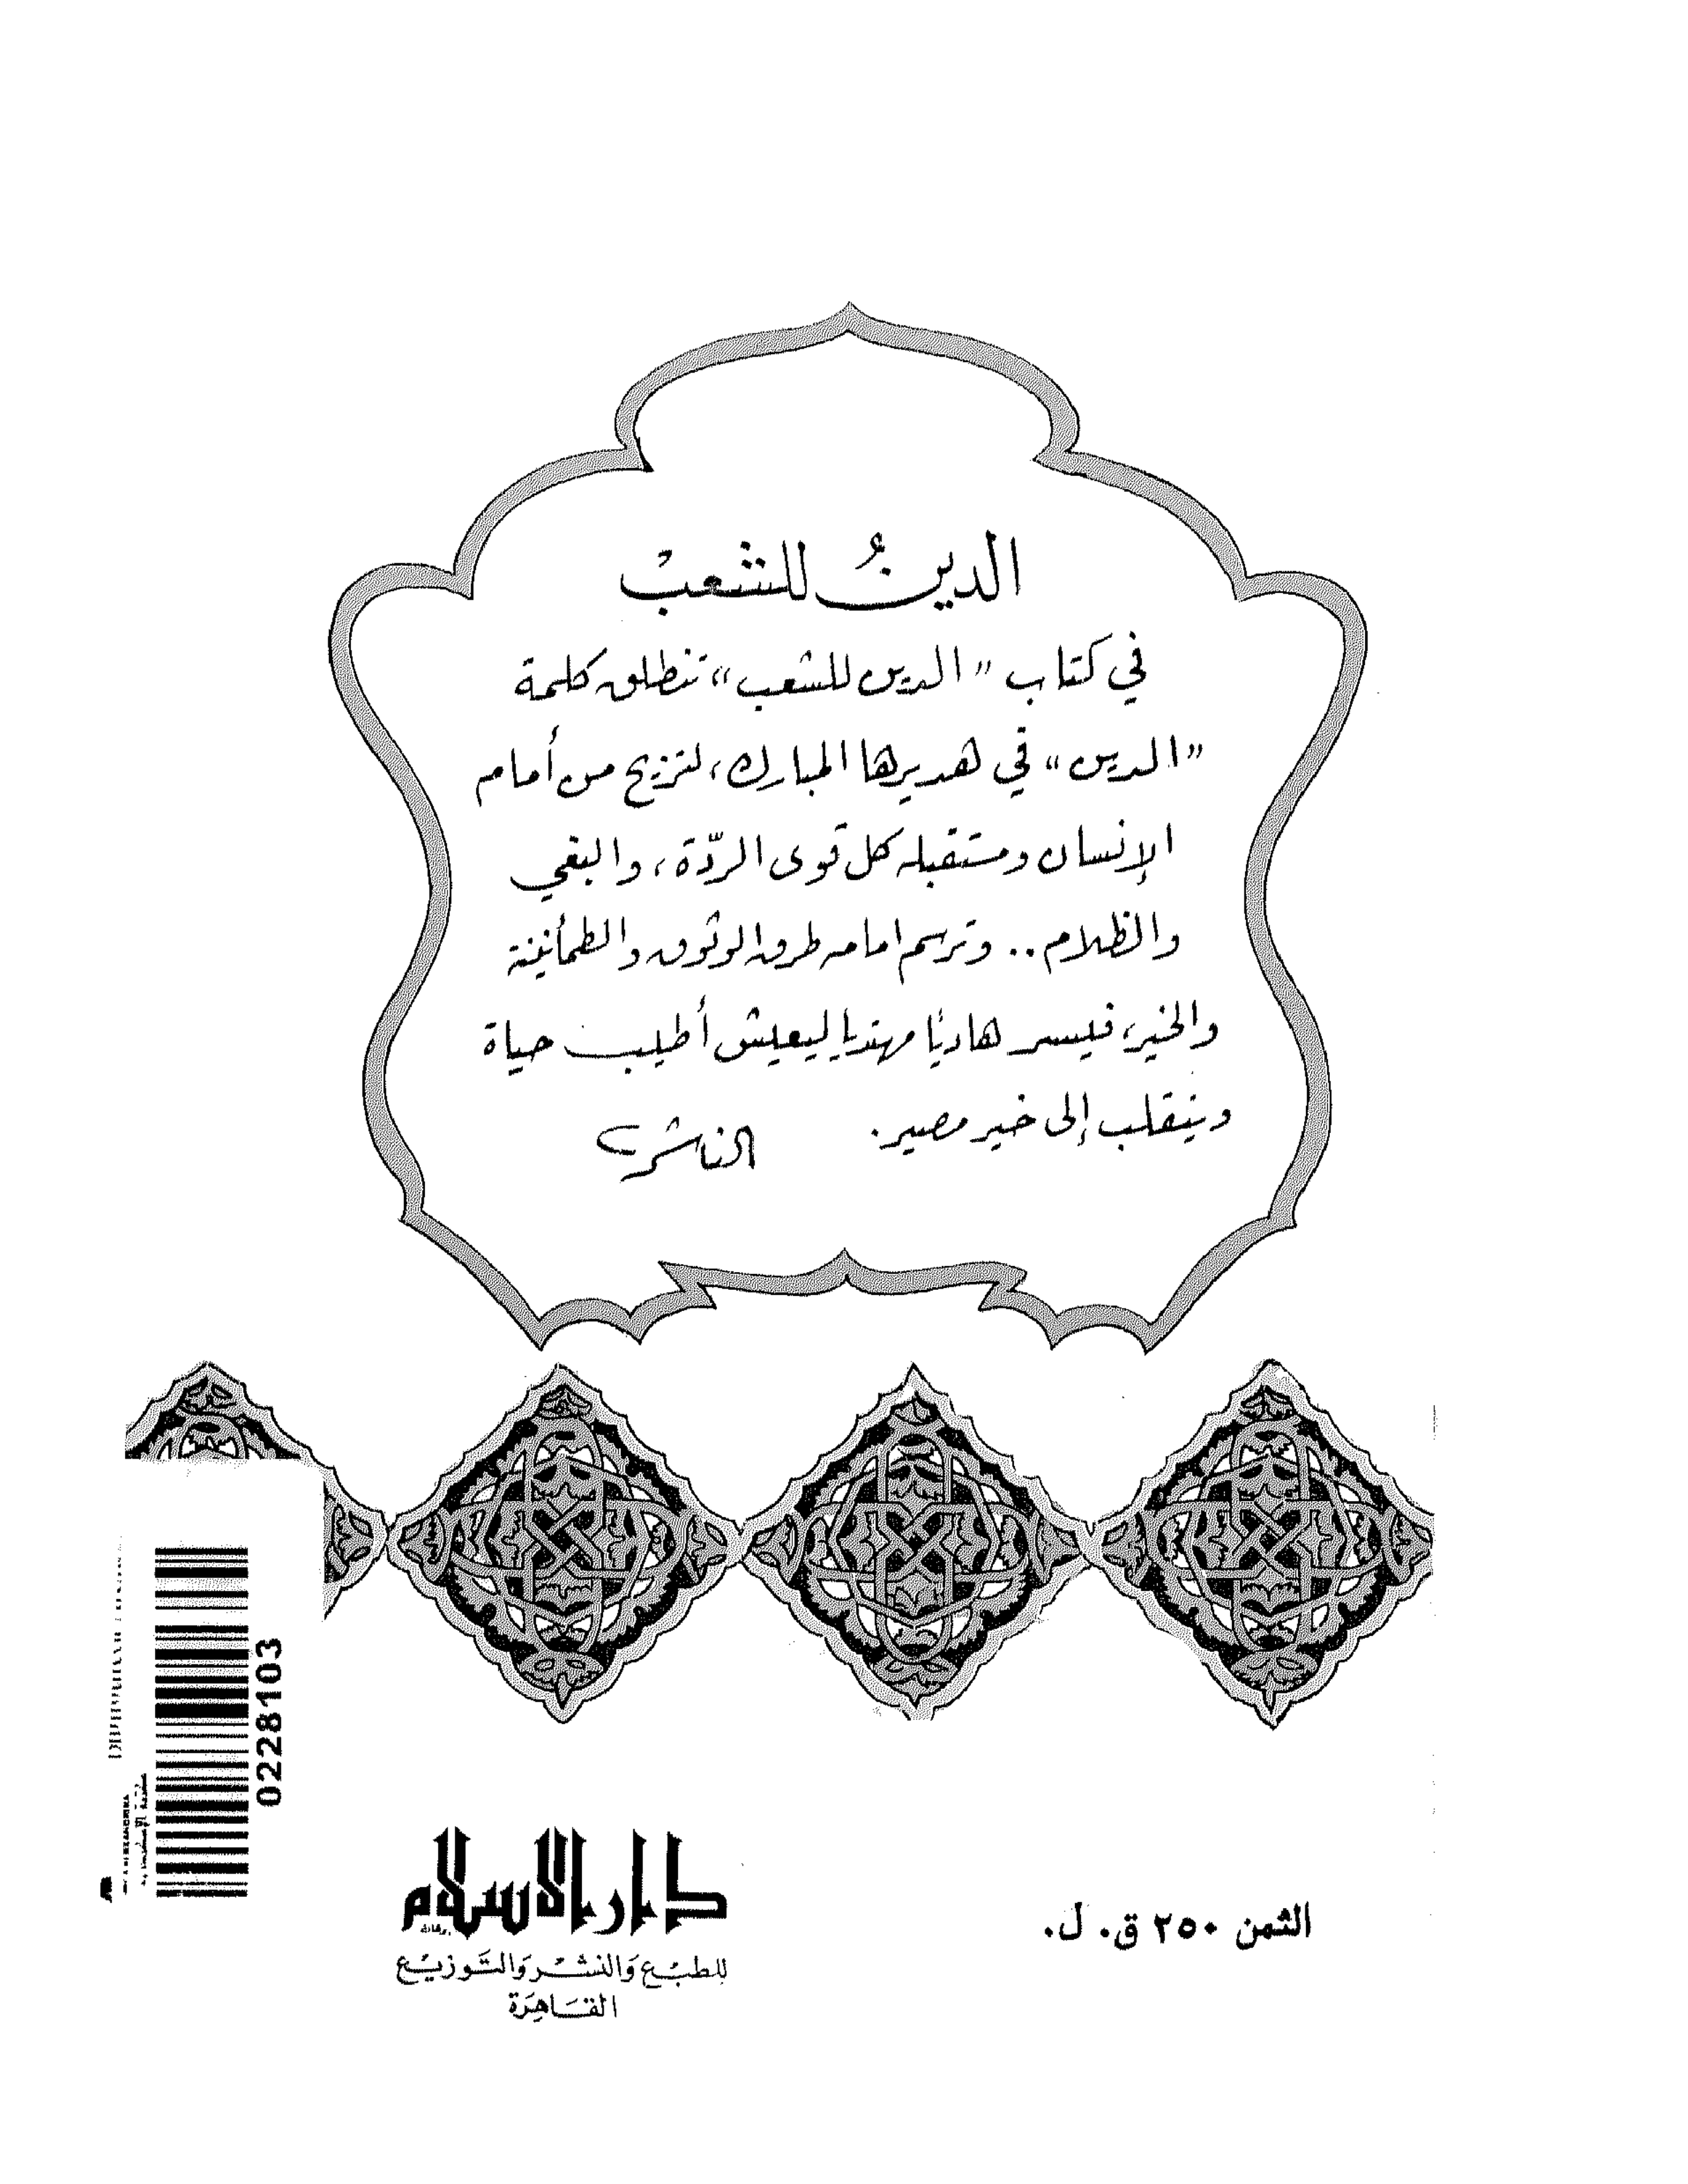 الدينُ للشعبْ
في كتاب «الدين للشعب» تنطلق كلمة
«الدين» في هديرها المبارك، لتزيح من أمام
الإنسان ومستقبله كل قوى الردّة، والبغي
والظلام.. وترسم امامه طرق الوثوق والطمأنينة
والخير، فيسير هاديًا مهتديا ليعيش أطيب حياة
وينقلب إلى خير مصير.
الناشر
0228103
دار الاسلام
للطبْع وَالنشْر وَالتَوزيْع
القَاهِرَة
الثمن ٢٥٠ ق. ل.